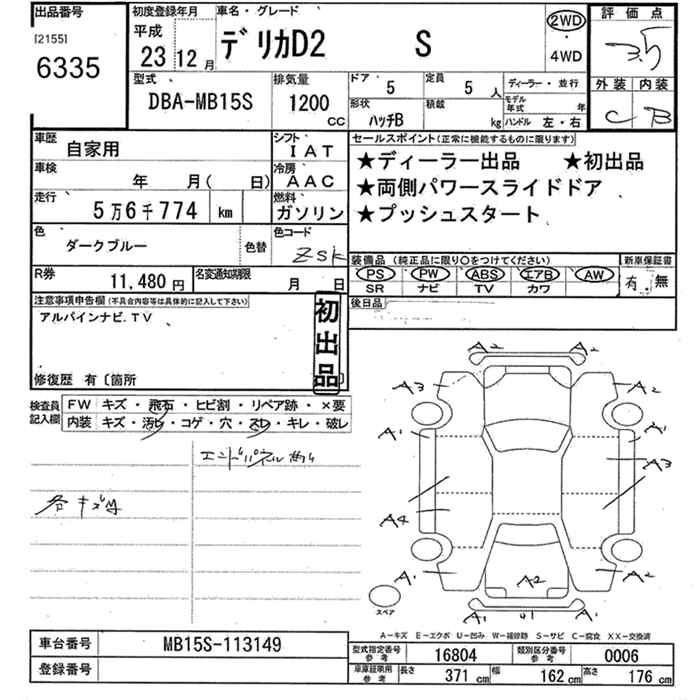 出品番号 初度登録年月 車名・グレード 評価点
[2155] 平成
6335 23 12月 デリカD2 S 2WD・4WD 3.5
型式 排気量 ドア 定員 ディーラー・並行 外装 内装
DBA-MB15S 1200 CC 5 5人 モデル年式 年 C B
形状 積載 ハンドル 左・右
ハッチB kg
車歴 シフト セールスポイント(正常に機能するものに限ります)
自家用 IAT ★ディーラー出品 ★初出品
車検 冷房 ★両側パワースライドドア
年 月( 日) AAC ★プッシュスタート
走行 燃料
5万6千774 km ガソリン
色 色替 色コード
ダークブルー ZSK
装備品(純正品に限り○をつけてください) 新車保証書
PS PW ABS エアB AW 有・無
SR ナビ TV カワ
R券 名変通知期限 後日品
11,480円 月 日
注意事項申告欄(不具合内容等は具体的に記入して下さい)
アルパインナビ.TV
初出品
修復歴 有〔箇所
検査員記入欄 FW キズ・飛石・ヒビ割・リペア跡・×要
内装 キズ・汚レ・コゲ・穴・スレ・キレ・破レ
各キズ
A2 A2
A3 A2
A1 A1
A3
A4
A1 A2 A2
A1 U1 A1
スペア
A-キズ E-エクボ U-凹み W-補修跡 S-サビ C-腐食 XX-交換済
車台番号 MB15S-113149
登録番号
型式指定番号参考 16804 類別区分番号参考 0006
車庫証明用参考 長さ 371cm 幅 162cm 高さ 176cm